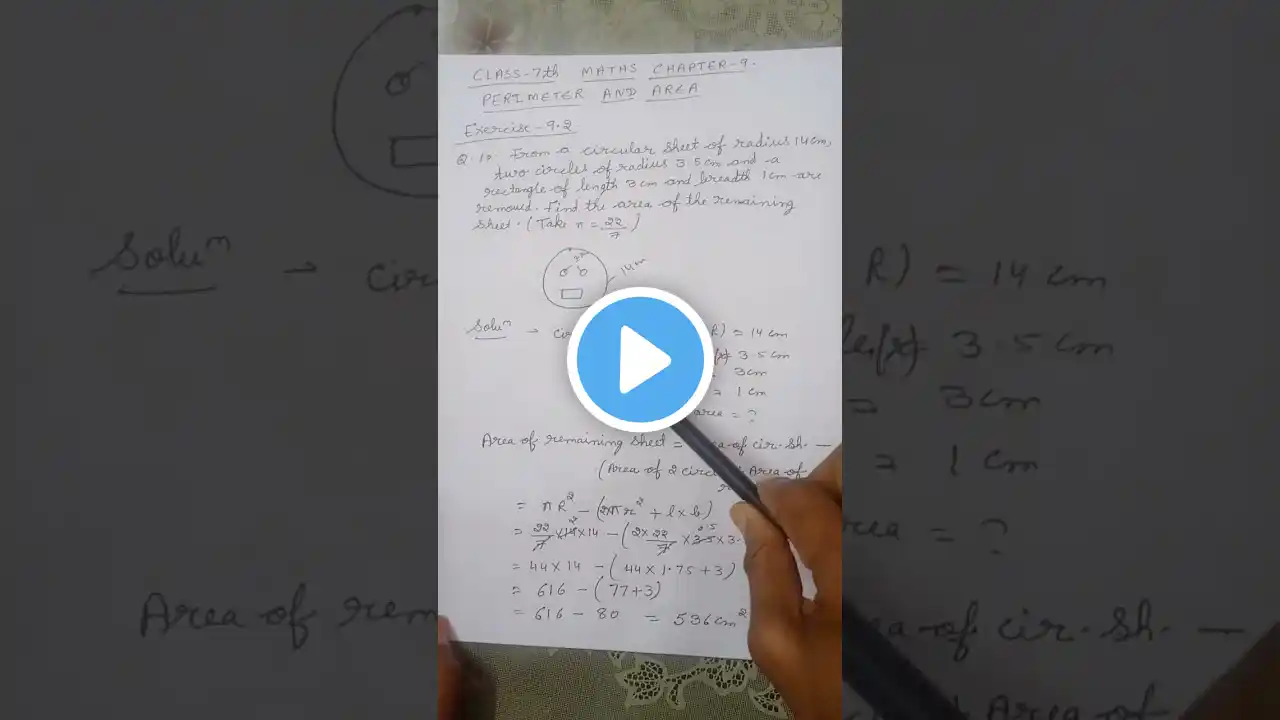 CLASS-7th MATHS CHAPTER-9.
PERIMETER AND AREA
Exercise-9.2
Q.1 From a circular sheet of radius 14cm,
two circles of radius 3.5cm and a
rectangle of length 3cm and breadth 1cm are
removed. Find the area of the remaining
sheet. (Take π = 22/7)
14cm
Soluⁿ → cir R) = 14 cm
3.5cm
3cm
= 1 cm
area = ?
Area of remaining sheet = area of cir. sh. —
(Area of 2 circ Area of
= πR² – (2πr² + l×b)
= 22/7 × 14 × 14 – (2 × 22/7 × 3.5 × 3.
= 44×14 – (44 × 1.75 + 3)
= 616 – (77+3)
= 616 – 80 = 536cm²